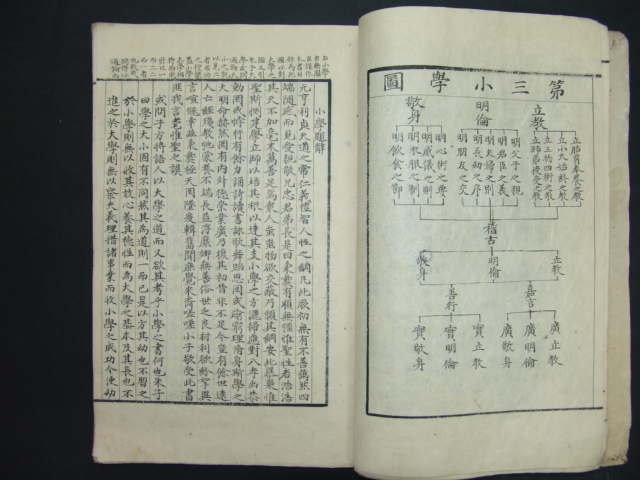 第三小學圖
立教
立胎育保養之教
立小大始終之教
立三物四術之教
立師弟授受之教
明倫
明父子之親
明君臣之義
明夫婦之別
明長幼之序
明朋友之交
敬身
明心術之要
明威儀之則
明衣服之制
明飲食之節
稽古
立教
明倫
敬身
嘉言
善行
廣立教
廣明倫
廣敬身
實立教
實明倫
實敬身
小學題辭
元亨利貞天道之常仁義禮智人性之綱凡此厥初無有不善藹然四
端隨感而見愛親敬兄忠君弟長是曰秉彝有順無彊惟聖性者浩浩
其天不加毫末萬善足焉衆人蚩蚩物欲交蔽乃頹其綱安此暴棄惟
聖斯惻建學立師以培其根以達其支小學之方灑掃應對入孝出恭
動罔或悖行有餘力誦詩讀書詠歌舞蹈思罔或逾窮理修身斯學之
大明命赫然罔有內外德崇業廣乃復其初昔非不足今豈有餘世遠
人亡經殘教弛蒙養不端長益浮靡鄕無善俗世乏良材利欲紛挐異
言喧豗幸玆秉彝極天罔墜爰輯舊聞庶覺來裔嗟嗟小子敬受此書
匪我言耄惟聖之謨
或問子方將語人以大學之道而又欲其考乎小學之書何也朱子
曰學之大小固有不同然其爲道則一而已是以方其幼也不習之
於小學則無以收其放心養其德性而爲大學之基本及其長也不
進之於大學則無以察夫義理措諸事業而收小學之成功今使幼